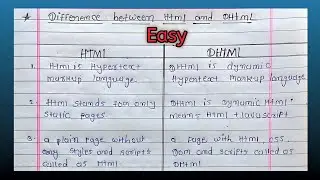 * Difference between Html and DHTML
Easy
HTMl
DHTMl
1. Html is Hypertext
markup language.
Html is dynamic
Hypertext markup language
2. Html stands for only
static pages
DHTMl is dynamic HTMl.
means HTMl + Javascript
3. a plain page without
any styles and scripts
called as Html
a page with Html, CSS,
Dom and scripts called as
DHtml